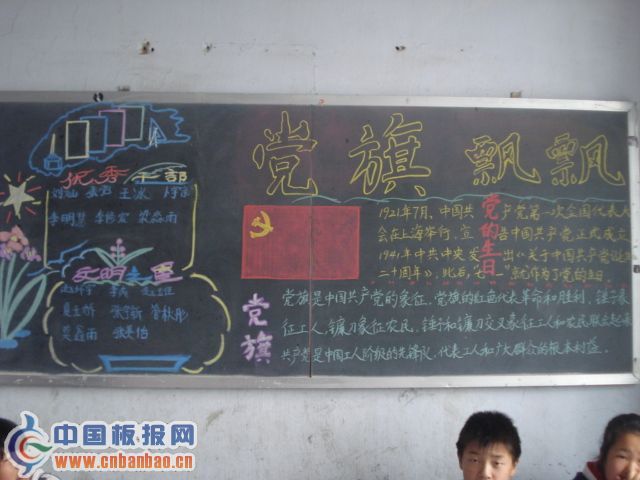 党旗飘飘
优秀干部
王冰
李明慧
文明之星
党的生日
1921年7月,中国共产党第一次全国代表大
会在上海举行,宣告中国共产党正式成立
1941年中共中央发出《关于中国共产党诞生
二十周年》,此后,七一就作为了党的生日.
党旗
党旗是中国共产党的象征,党旗的红色代表革命和胜利,锤子象
征工人,镰刀象征农民,锤子和镰刀交叉象征工人和农民联立起来
共产党是中国工人阶级的先锋队,代表工人和广大群众的根本利益.
中国板报网
www.cnbanbao.cn